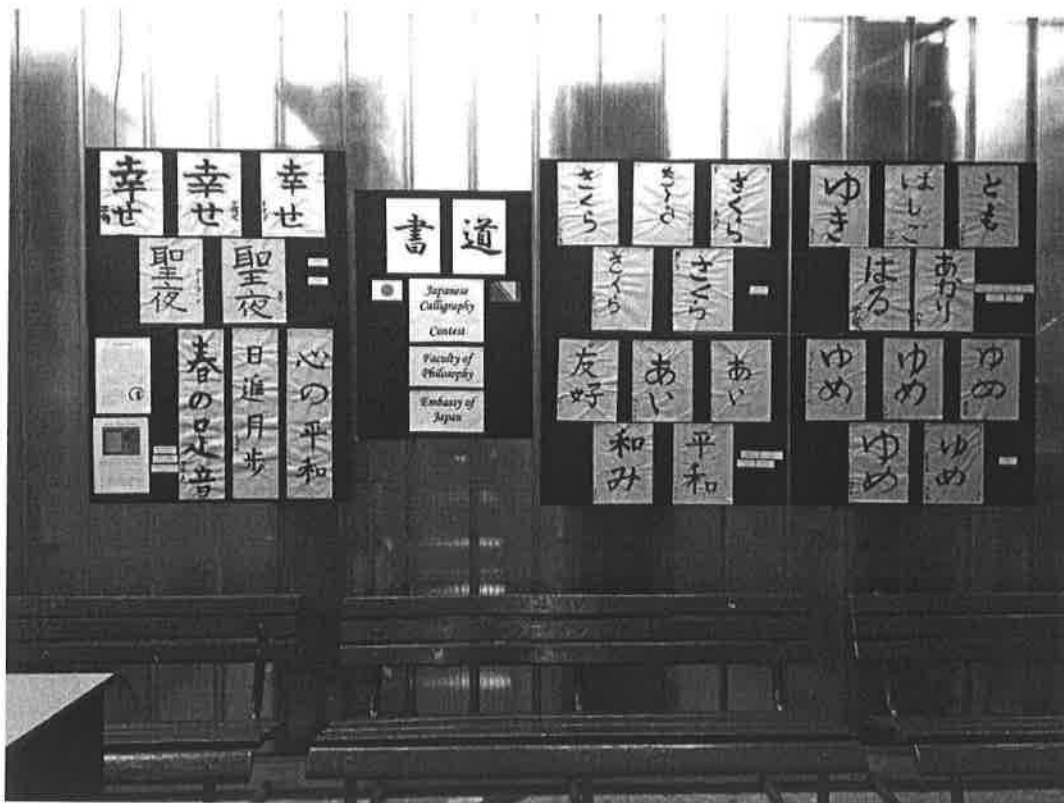 幸せ
幸せ
幸せ
聖夜
聖夜
春の足音
日進月歩
心の平和
書道
Japanese
Calligraphy
Contest
Faculty of
Philosophy
Embassy of
Japan
さくら
さくら
さくら
さくら
さくら
友好
あい
あい
和み
平和
ゆき
はしご
とも
はる
あかり
ゆめ
ゆめ
ゆめ
ゆめ
ゆめ